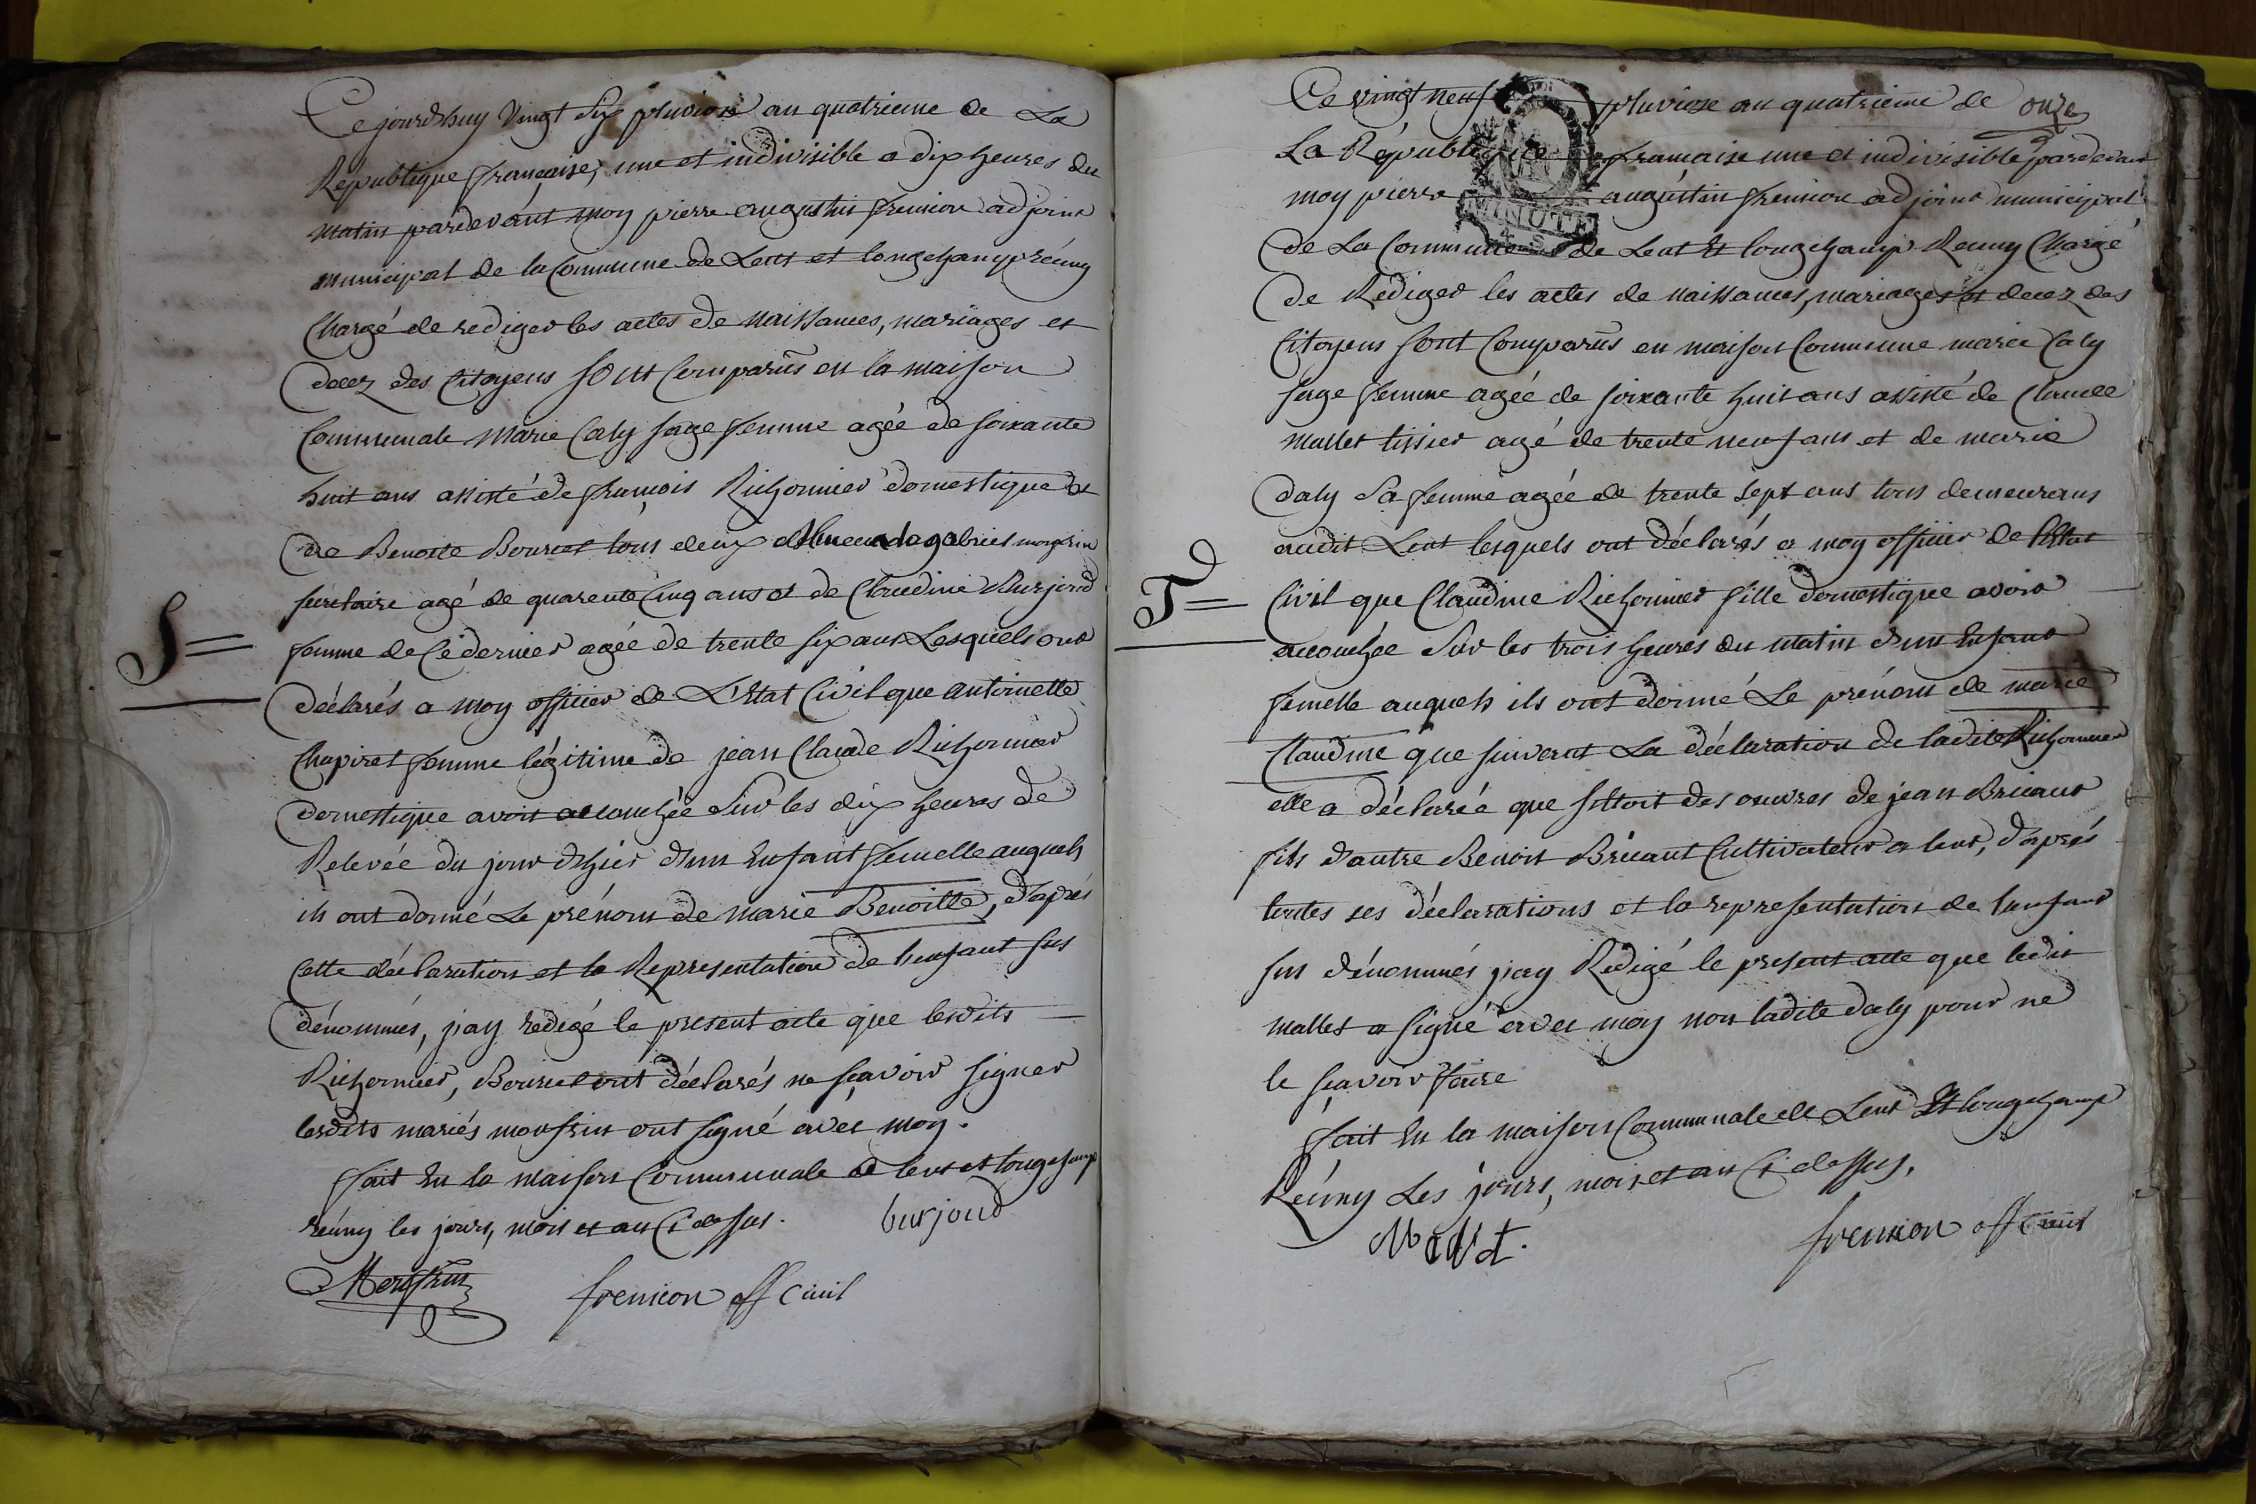 Ce jourdhuy vingt Six pluviose an quatrieme de La
République française, une et indivisible a dix heures du
matin pardevant moy pierre augustin frenion adjoint
municipal de la Commune de Lent et longchamp réuny
Chargé de rediger les actes de naissances, mariages et
decez des Citoyens sont Comparus en la maison
Communale Marie Caly sage femme agée de soixante
huit ans assisté de françois Richonnier domestique et
de Benoite Bourcet tous deux gabriel
secretaire agé de quarente Cinq ans et de Claudine Burjoud
femme de Ce dernier agée de trente six ans Lesquels ont
déclarés a moy officier de L'Etat Civil que antoinette
Chapiret femme légitime de jean Claude Richonnier
domestique avoit accouchée Sur les dix heures de
Relevée du jour d'hier d'un Enfant femelle auquels
ils ont donné Le prénom de marie Benoitte, d'après
Cette déclaration et la Representation de l'enfant sus
dénommés, j'ay redigé le present acte que lesdits
Richonnier, Bourcet ont déclarés ne sçavoir signer
lesdits mariés monfrin ont signé avec moy.
fait En la maison Communale de lent et longchamp
reuny les jours, mois et an Ci dessus. burjoud
Monfrin frenion off Civil
S=
onze
Ce vingt neuf pluviose an quatrieme de
La République française une et indivisible pardevant
moy pierre augustin frenion adjoint municipal
MINUTE
de La Commune de Lent Et longchamp Reuny Chargé
de Rédiger les actes de naissances, mariages et decez des
Citoyens sont Comparus en maison Commune marie Caly
sage femme agée de soixante huit ans assisté de Claude
Mallet tissier agé de trente neuf ans et de marie
daly Sa femme agée de trente sept ans tous demeurans
audit Lent lesquels ont déclarés a moy officier de l'Etat
T=
Civil que Claudine Richonnier fille domestique avoir
accouchée Sur les trois heures du matin d'un Enfant
femelle auquels ils ont donné Le prénom de marie
Claudine que suivant La déclaration de ladite Richonnier
elle a déclarée que s'étoit des œuvres de jean Bricaut
fils d'autre Benoit Bricaut Cultivateur a lent, d'après
toutes ses déclarations et la representation de l'enfant
sus dénommés j'ay Rédigé le present acte que ledit
Mallet a signé avec moy non ladite daly pour ne
le sçavoir faire
fait En la maison Communale de Lent Et longchamp
Reuny Les jours, mois et an Ci dessus.
frenion off Civil